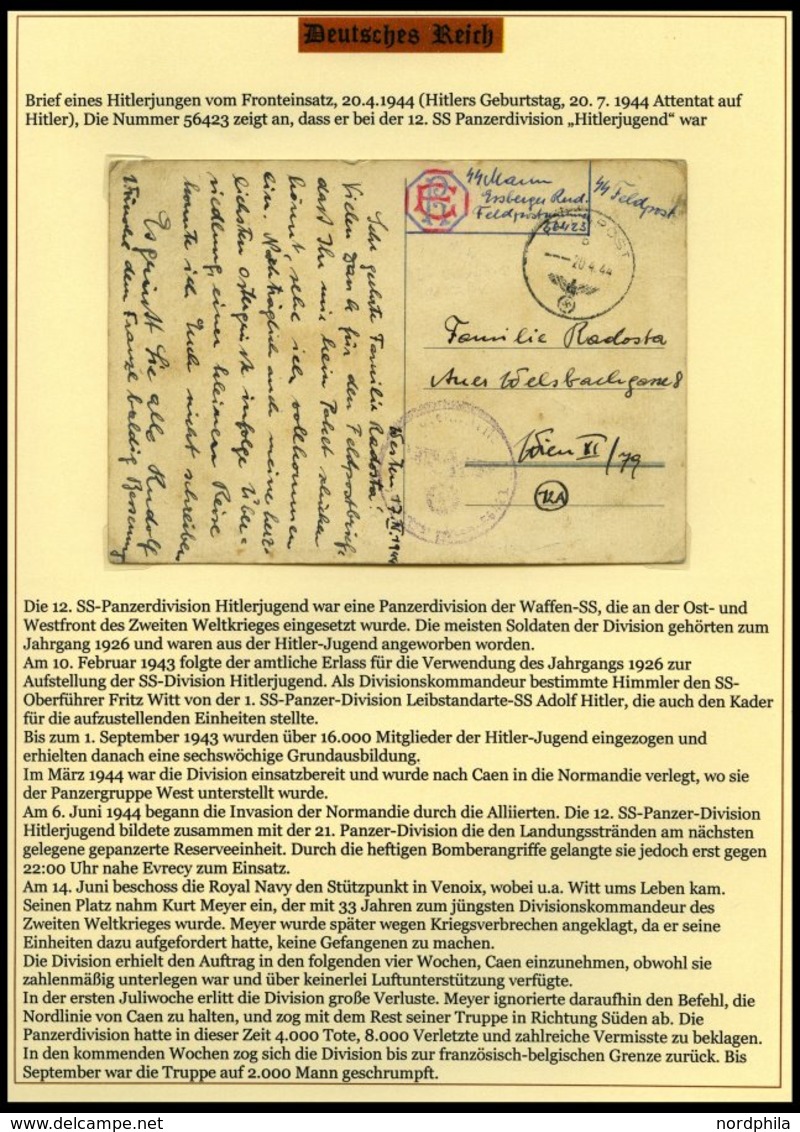 Deutsches Reich
Brief eines Hitlerjungen vom Fronteinsatz, 20.4.1944 (Hitlers Geburtstag, 20. 7. 1944 Attentat auf
Hitler), Die Nummer 56423 zeigt an, dass er bei der 12. SS Panzerdivision „Hitlerjugend“ war
Westen, 17.IV.1944
Sehr geehrte Familie Radosta!
Vielen Dank für den Feldpostbrief,
daß Ihr mir kein Paket schicken
könnt, sehe ich vollkommen
ein. Nachträglich auch meine herz-
lichsten Ostergrüße infolge Über-
siedlung, einer kleinen Reise
konnte ich Euch nicht schreiben
Es grüßt Sie alle Rudolf
Wünsche dem Franzl baldig Besserung
SS Mann
Ersberger Rud.
Feldpostnummer
56423
SS Feldpost
20.4.44
Familie Radosta
Auer Welsbachgasse 8
Wien XI/79
Die 12. SS-Panzerdivision Hitlerjugend war eine Panzerdivision der Waffen-SS, die an der Ost- und
Westfront des Zweiten Weltkrieges eingesetzt wurde. Die meisten Soldaten der Division gehörten zum
Jahrgang 1926 und waren aus der Hitler-Jugend angeworben worden.
Am 10. Februar 1943 folgte der amtliche Erlass für die Verwendung des Jahrgangs 1926 zur
Aufstellung der SS-Division Hitlerjugend. Als Divisionskommandeur bestimmte Himmler den SS-
Oberführer Fritz Witt von der 1. SS-Panzer-Division Leibstandarte-SS Adolf Hitler, die auch den Kader
für die aufzustellenden Einheiten stellte.
Bis zum 1. September 1943 wurden über 16.000 Mitglieder der Hitler-Jugend eingezogen und
erhielten danach eine sechswöchige Grundausbildung.
Im März 1944 war die Division einsatzbereit und wurde nach Caen in die Normandie verlegt, wo sie
der Panzergruppe West unterstellt wurde.
Am 6. Juni 1944 begann die Invasion der Normandie durch die Alliierten. Die 12. SS-Panzer-Division
Hitlerjugend bildete zusammen mit der 21. Panzer-Division die den Landungsstränden am nächsten
gelegene gepanzerte Reserveeinheit. Durch die heftigen Bomberangriffe gelangte sie jedoch erst gegen
22:00 Uhr nahe Evrecy zum Einsatz.
Am 14. Juni beschoss die Royal Navy den Stützpunkt in Venoix, wobei u.a. Witt ums Leben kam.
Seinen Platz nahm Kurt Meyer ein, der mit 33 Jahren zum jüngsten Divisionskommandeur des
Zweiten Weltkrieges wurde. Meyer wurde später wegen Kriegsverbrechen angeklagt, da er seine
Einheiten dazu aufgefordert hatte, keine Gefangenen zu machen.
Die Division erhielt den Auftrag in den folgenden vier Wochen, Caen einzunehmen, obwohl sie
zahlenmäßig unterlegen war und über keinerlei Luftunterstützung verfügte.
In der ersten Juliwoche erlitt die Division große Verluste. Meyer ignorierte daraufhin den Befehl, die
Nordlinie von Caen zu halten, und zog mit dem Rest seiner Truppe in Richtung Süden ab. Die
Panzerdivision hatte in dieser Zeit 4.000 Tote, 8.000 Verletzte und zahlreiche Vermisste zu beklagen.
In den kommenden Wochen zog sich die Division bis zur französisch-belgischen Grenze zurück. Bis
September war die Truppe auf 2.000 Mann geschrumpft.
nordphila